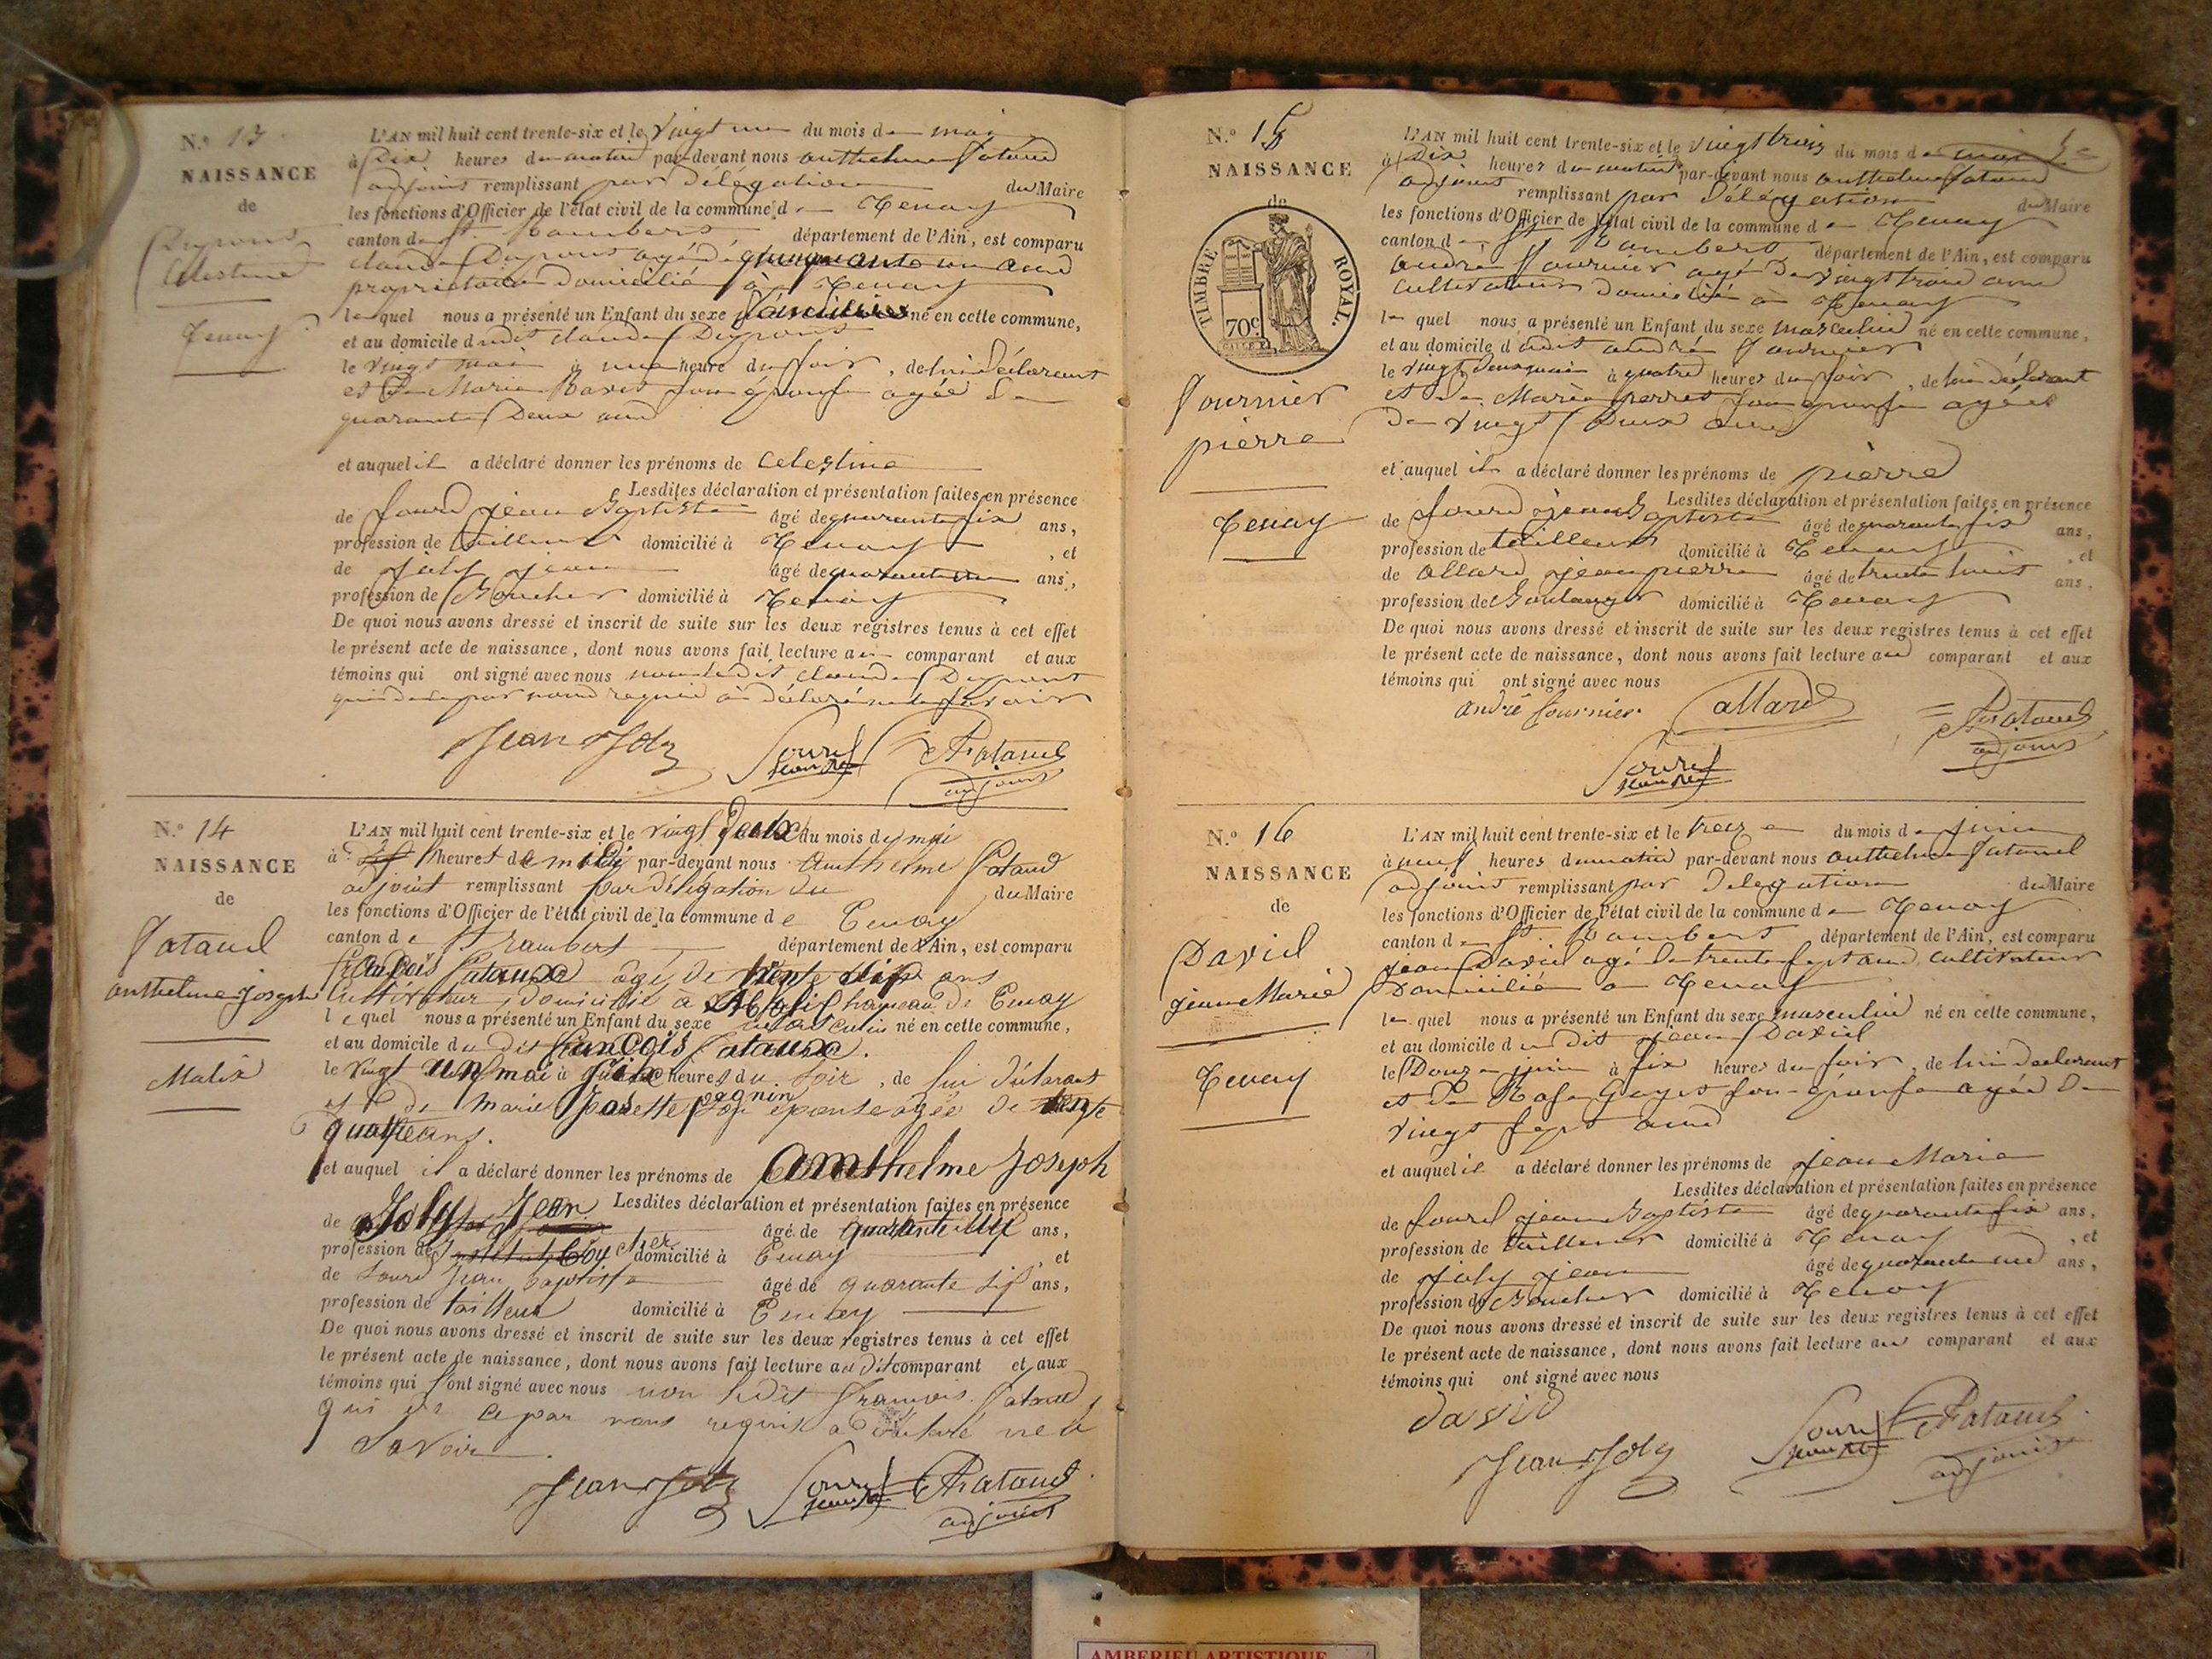 N.º 13
NAISSANCE
de
Celestine
Tenay
L'AN mil huit cent trente-six et le vingt un du mois de mai
à dix heures du matin par-devant nous anthelme Pataud
adjoint remplissant par Délégation du Maire
les fonctions d'Officier de l'état civil de la commune de Tenay
canton de St Rambert département de l'Ain, est comparu
claude agé de cinquante un ans
propriétaire Domicilié à Tenay
lequel nous a présenté un Enfant du sexe né en cette commune,
et au domicile dudit claude
le vingt mai à une heure du soir, de lui Déclarant
et De Marie son épouse agée De
quarante Deux ans
et auquel il a déclaré donner les prénoms de Celestine
Lesdites déclaration et présentation faites en présence
de jean Baptiste âgé de quarante six ans,
profession de tailleur domicilié à Tenay, et
de joly jean âgé de quarante un ans,
profession de Boucher domicilié à Tenay
De quoi nous avons dressé et inscrit de suite sur les deux registres tenus à cet effet
le présent acte de naissance, dont nous avons fait lecture au comparant et aux
témoins qui ont signé avec nous non ledit claude
qui de ce par nous requis à Déclaré ne le savoir
Jean Joly
Pataud
adjoint
N.º 14
NAISSANCE
de
Pataud
anthelme joseph
Malix
L'AN mil huit cent trente-six et le vingt Deux du mois de mai
à heures de midi par-devant nous Anthelme Pataud
adjoint remplissant par délégation du du Maire
les fonctions d'Officier de l'état civil de la commune de Tenay
canton de St rambert département de l'Ain, est comparu
françois Pataux agé de trente six ans
Cultivateur, domicilié à Malix hameau de Tenay
lequel nous a présenté un Enfant du sexe masculin né en cette commune,
et au domicile du dit françois Pataux.
le vingt un mai à six heures du soir, de lui déclarant
et de marie josette pagnin son épouse agée de trente
quatre ans.
et auquel il a déclaré donner les prénoms de Amthelme Joseph
Lesdites déclaration et présentation faites en présence
de Joly Jean âgé de quarante un ans,
profession de Boucher domicilié à Tenay et
de jean baptiste âgé de quarante six ans,
profession de tailleur domicilié à Tenay
De quoi nous avons dressé et inscrit de suite sur les deux registres tenus à cet effet
le présent acte de naissance, dont nous avons fait lecture au dit comparant et aux
témoins qui ont signé avec nous non ledit françois Pataud
qui de ce par nous requis a déclaré ne le
savoir
Jean Joly
Pataud
adjoint
N.º 15
NAISSANCE
de
TIMBRE ROYAL.
70c
fournier
pierre
Tenay
L'AN mil huit cent trente-six et le vingt trois du mois de mai
à dix heures du matin par-devant nous anthelme Pataud
adjoint remplissant par Délégation du Maire
les fonctions d'Officier de l'état civil de la commune de Tenay
canton de St Rambert département de l'Ain, est comparu
andré fournier agé de vingt trois ans
cultivateur Domicilié à Tenay
lequel nous a présenté un Enfant du sexe masculin né en cette commune,
et au domicile dudit andré fournier
le vingt Deux mai à quatre heures du soir, de lui déclarant
et De Marie perret son épouse agée
De vingt Deux ans
et auquel il a déclaré donner les prénoms de pierre
Lesdites déclaration et présentation faites en présence
de jean Baptiste âgé de quarante six ans,
profession de tailleur domicilié à Tenay, et
de Allard jean pierre âgé de trente huit ans,
profession de Boulanger domicilié à Tenay
De quoi nous avons dressé et inscrit de suite sur les deux registres tenus à cet effet
le présent acte de naissance, dont nous avons fait lecture au comparant et aux
témoins qui ont signé avec nous
andré fournier allard Pataud
adjoint
N.º 16
NAISSANCE
de
David
jean Marie
Tenay
L'AN mil huit cent trente-six et le treize du mois de juin
à neuf heures du matin par-devant nous anthelme Pataud
adjoint remplissant par Délégation du Maire
les fonctions d'Officier de l'état civil de la commune de Tenay
canton de St Rambert département de l'Ain, est comparu
jean David agé de trente sept ans, cultivateur
Domicilié à Tenay
lequel nous a présenté un Enfant du sexe masculin né en cette commune,
et au domicile du dit jean David
le Douze juin à six heures du soir, de lui declarant
et De son épouse agée De
vingt sept ans
et auquel il a déclaré donner les prénoms de jean Marie
Lesdites déclaration et présentation faites en présence
de jean Baptiste âgé de quarante six ans,
profession de tailleur domicilié à Tenay, et
de joly jean âgé de quarante un ans,
profession de Boucher domicilié à Tenay
De quoi nous avons dressé et inscrit de suite sur les deux registres tenus à cet effet
le présent acte de naissance, dont nous avons fait lecture au comparant et aux
témoins qui ont signé avec nous
David
Jean Joly
Pataud
adjoint
AMBERIEU ARTISTIQUE